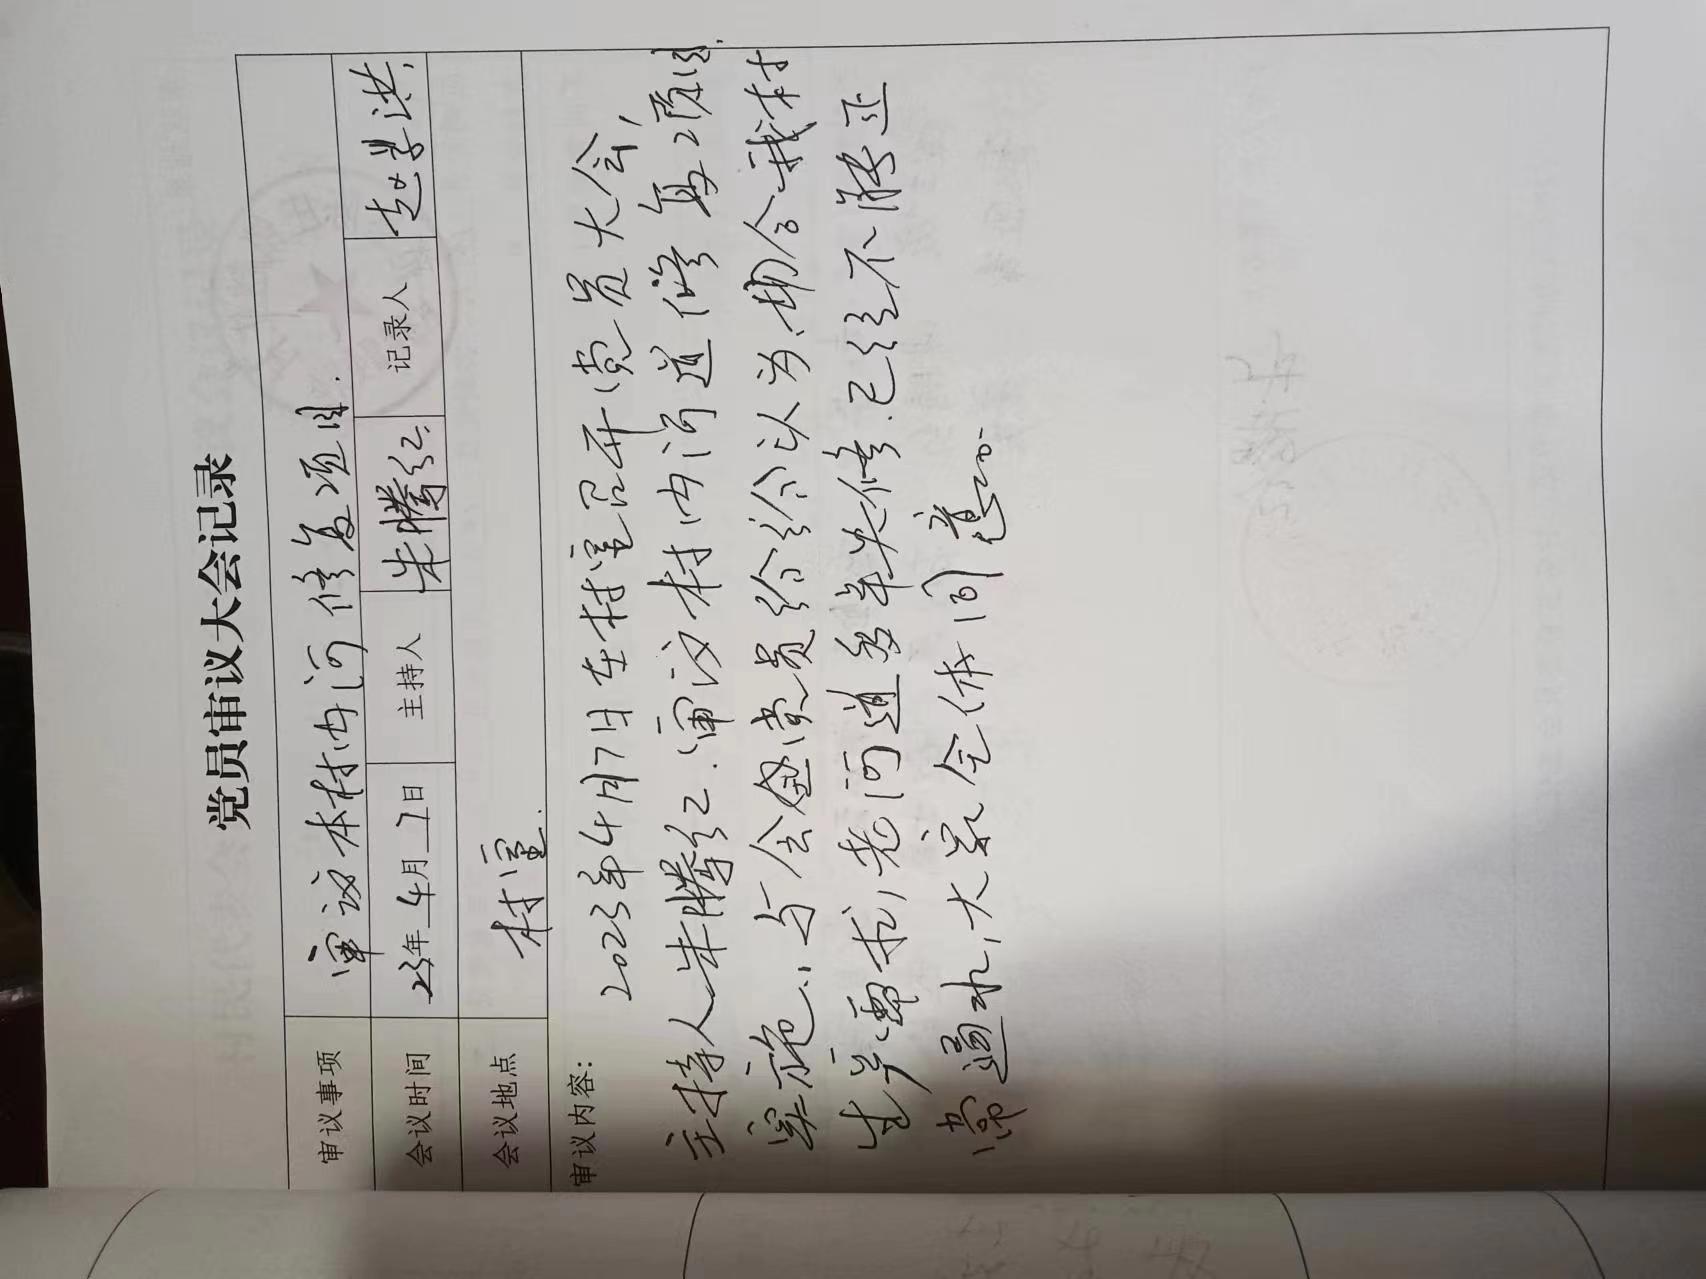 党员审议大会记录
审议事项 审议本村内河修复项目.
会议时间 23年 4月 7日 主持人 朱腾红. 记录人 赵学洪,
会议地点 村室.
审议内容:
2023年4月7日在村室召开党员大会,
主持人朱腾红.审议村内河道修复项目.
实施.,与会党员纷纷认为,切合我村
生产需求,老河道多年失修.已经不能正
常通水,大家全体同意.